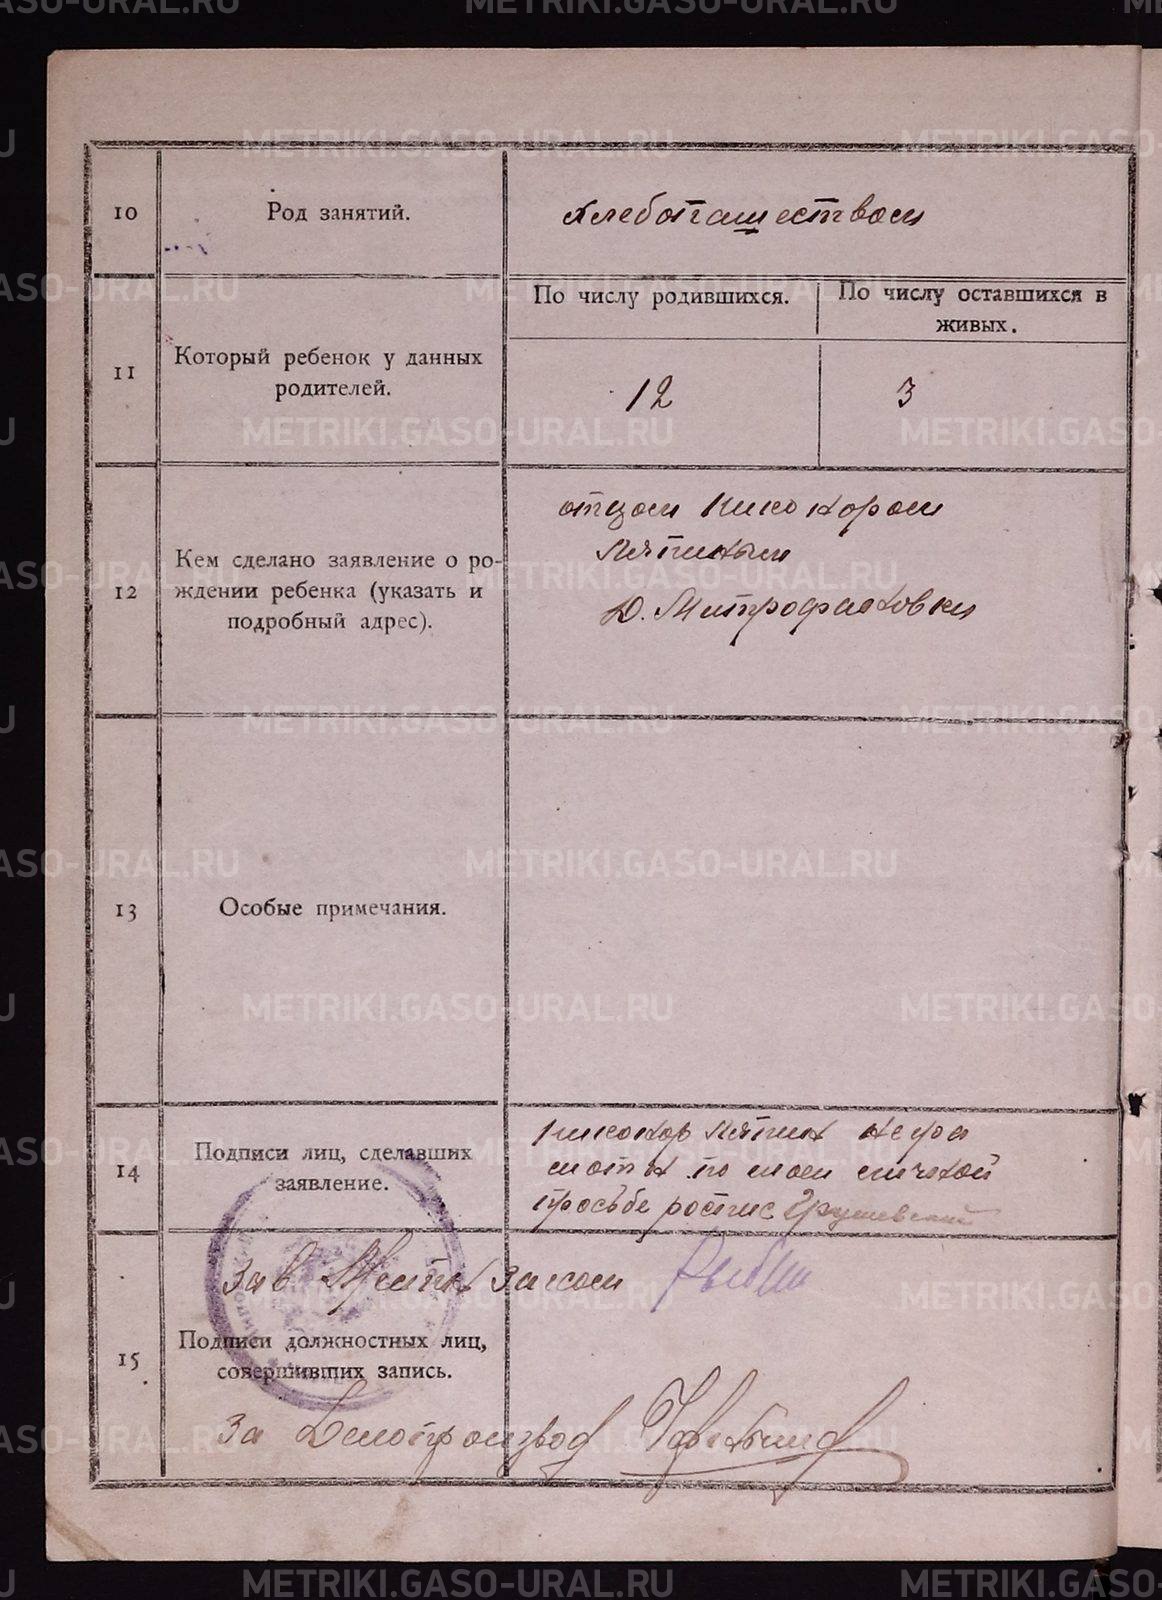 10
Род занятий.
Хлебопашеством
11
Который ребенок у данных
родителей.
По числу родившихся.
По числу оставшихся в
живых.
12
3
12
Кем сделано заявление о ро-
ждении ребенка (указать и
подробный адрес).
отцом Никонором
Ляпиным
Д. Митрофановки
13
Особые примечания.
14
Подписи лиц, сделавших
заявление.
Никонор Ляпин негра
мотн по моей личной
просьбе роспис
15
Зав. Загсом
Подписи должностных лиц,
совершивших запись.
За Делопроизвод
METRIKI.GASO-URAL.RU